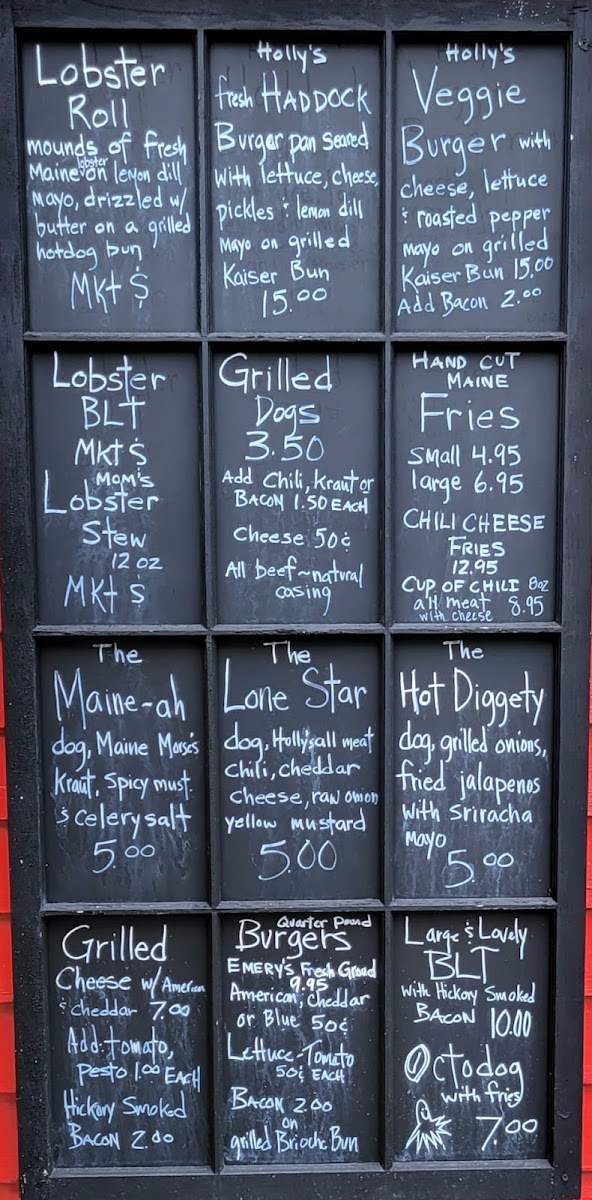 Lobster
Roll
mounds of fresh
Maine lobster on lemon dill
mayo, drizzled w/
butter on a grilled
hotdog bun
Mkt $
Holly's
fresh HADDOCK
Burger pan seared
with lettuce, cheese,
pickles & lemon dill
mayo on grilled
Kaiser Bun
15.00
Holly's
Veggie
Burger with
cheese, lettuce
& roasted pepper
mayo on grilled
Kaiser Bun 15.00
Add Bacon 2.00
Lobster
BLT
Mkt $
MOM's
Lobster
Stew
12 oz
Mkt $
Grilled
Dogs
3.50
Add Chili, kraut or
BACON 1.50 EACH
Cheese 50¢
All beef~natural
casing
HAND CUT
MAINE
Fries
small 4.95
large 6.95
CHILI CHEESE
FRIES
12.95
CUP OF CHILI 8oz
all meat 8.95
with cheese
The
Maine-ah
dog, Maine Morse's
kraut, spicy must.
& celery salt
5.00
The
Lone Star
dog, Holly's all meat
chili, cheddar
cheese, raw onion
yellow mustard
5.00
The
Hot Diggety
dog, grilled onions,
fried jalapenos
with Sriracha
mayo
5.00
Grilled
Cheese w/ American
& cheddar 7.00
Add-tomato,
pesto 1.00 EACH
Hickory Smoked
BACON 2.00
Quarter Pound
Burgers
EMERY'S Fresh Ground
9.95
American, Cheddar
or Blue 50¢
Lettuce-Tomato
50¢ EACH
BACON 2.00
on
grilled Brioche Bun
Large & Lovely
BLT
with Hickory Smoked
BACON 10.00
Octodog
with fries
7.00